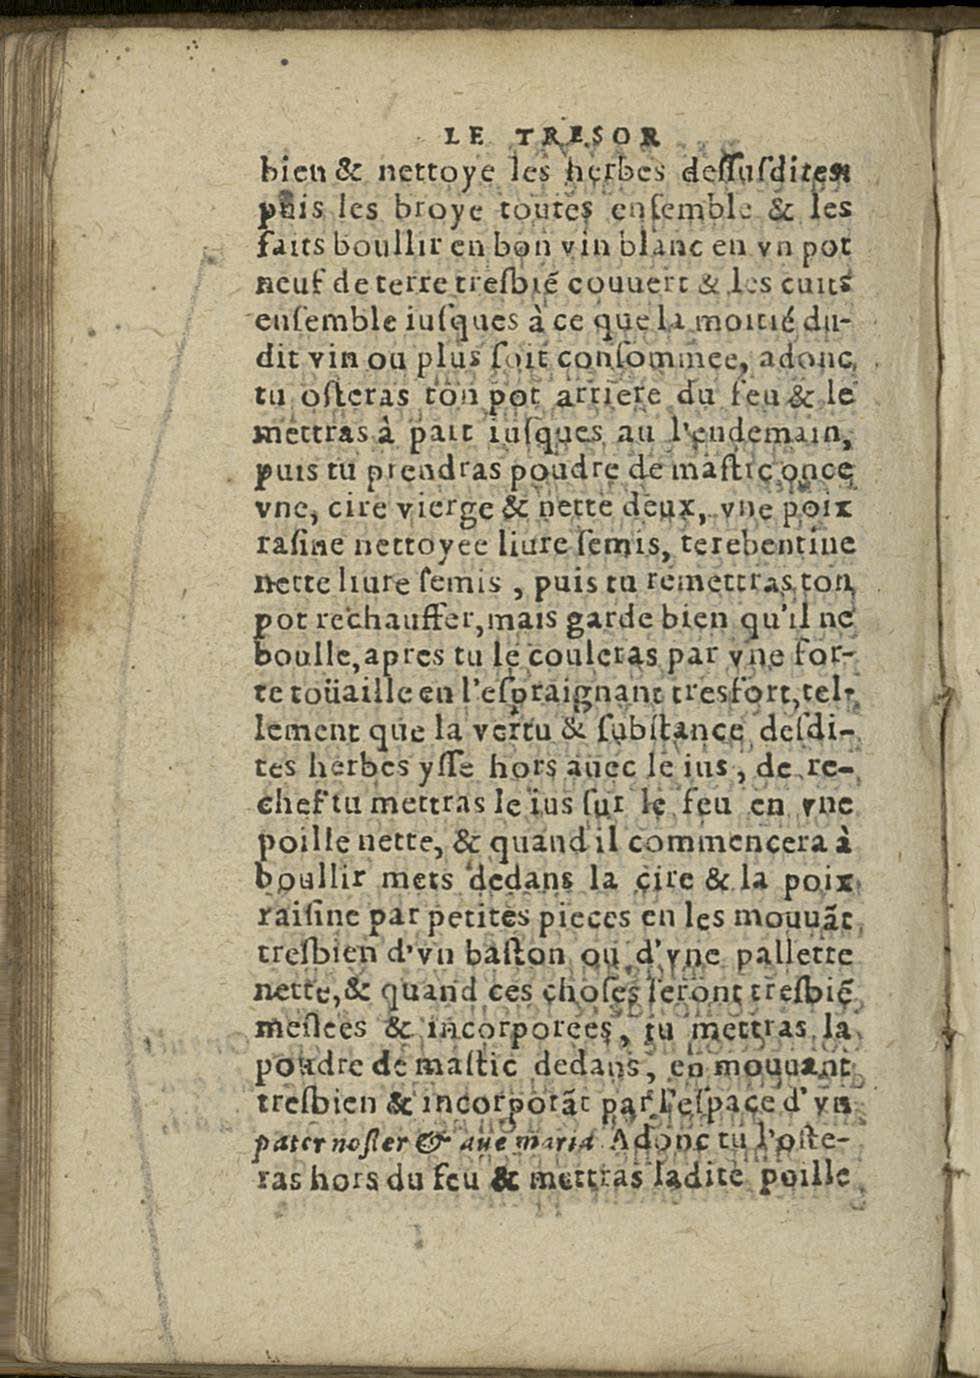 LE TRESOR
bien & nettoye les herbes deſſuſdites
puis les broye toutes enſemble & les
faits boullir en bon vin blanc en vn pot
neuf de terre treſbié couuert & les cuits
enſemble iuſques à ce que la moitié du-
dit vin ou plus ſoit conſommee, adonc
tu oſteras ton pot arriere du feu & le
mettras à part iuſques au l'endemain,
puis tu prendras poudre de maſtic once
vne, cire vierge & nette deux, vne poix
raſine nettoyee liure ſemis, terebentine
nette liure ſemis, puis tu remettras ton
pot rechauffer, mais garde bien qu'il ne
boulle, apres tu le couleras par vne for-
te toüaille en l'eſpraignant tresfort, tel-
lement que la vertu & ſubſtance deſdi-
tes herbes yſſe hors auec le ius, de re-
chef tu mettras le ius ſur le feu en vne
poille nette, & quand il commencera à
boullir mets dedans la cire & la poix
raiſine par petites pieces en les mouuãt
treſbien d'vn baſton ou d'vne pallette
nette, & quand ces choſes ſeront treſbiẽ
meſlees & incorporees, tu mettras la
poudre de maſtic dedans, en mouuant
treſbien & incorporãt par l'eſpace d'vn
pater noſter & aue maria Adonc tu l'oſte-
ras hors du feu & mettras ladite poille